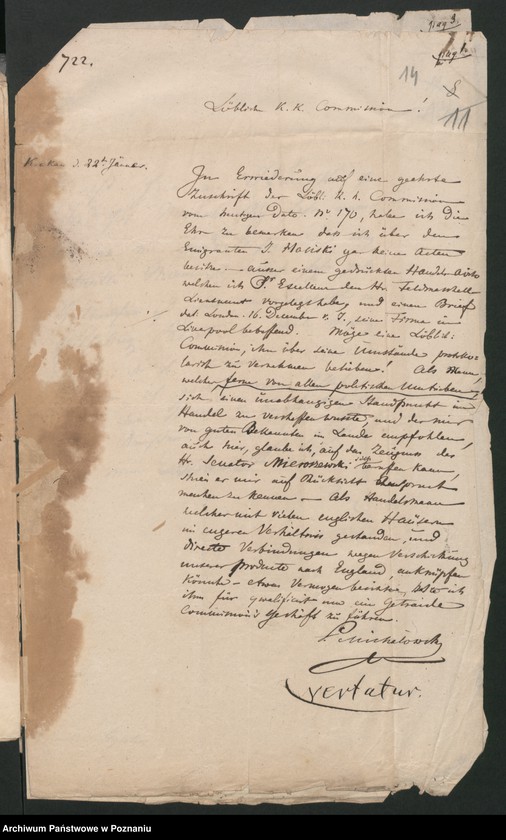 ując 3.
ując 1.
722.
14
8
11
Löbliche K. K. Commission!
Krakau d. 22t Jänner.
In Erwiederung auf eine geehrte
Zuschrift der Löbl: k. k. Commission
vom heutigen Dato. Nr 170, habe ich die
Ehre zu bemerken das ich über den
Emigranten J. Maciski gar keine Acten
besitze – ausser einem gedruckten Handels Aviso
welchen ich Sr Excellenz den Hr. Feldmarschall
Lieutenant vorgelegt habe, und einen Brief
dat London 16. December v. J., seine Firma in
Liverpool betreffend. Möge eine Löblich:
Commission, ihn über seine Umstände protokol-
larisch zu vernehmen belieben! Als Mann,
welcher ferne von allen politischen Umtrieben,
sich einen unabhängigen Standpunct im
Handel zu verschaffen wusste, und der mir
von guten Bekannten im Lande empfohlen,
auch hier, glaube ich, auf das Zeugniss des
Hr. Senator Mieroszewski sich berufen kann,
schien er mir auf Rücksicht Anspruch
machen zu können – Als Handelsmann
welcher mit vielen englischen Häusern
in engeren Verhältniss gestanden, und
directe Verbindungen wegen Verschickung
unserer Producte nach England, anknüpfen
könnte – etwas Vermögen besitze, hielt ich
ihn für qualificirt um ein Getraide
Commissions Geschäft zu führen.
P Michałowski
vertatur.
Archiwum Państwowe w Poznaniu